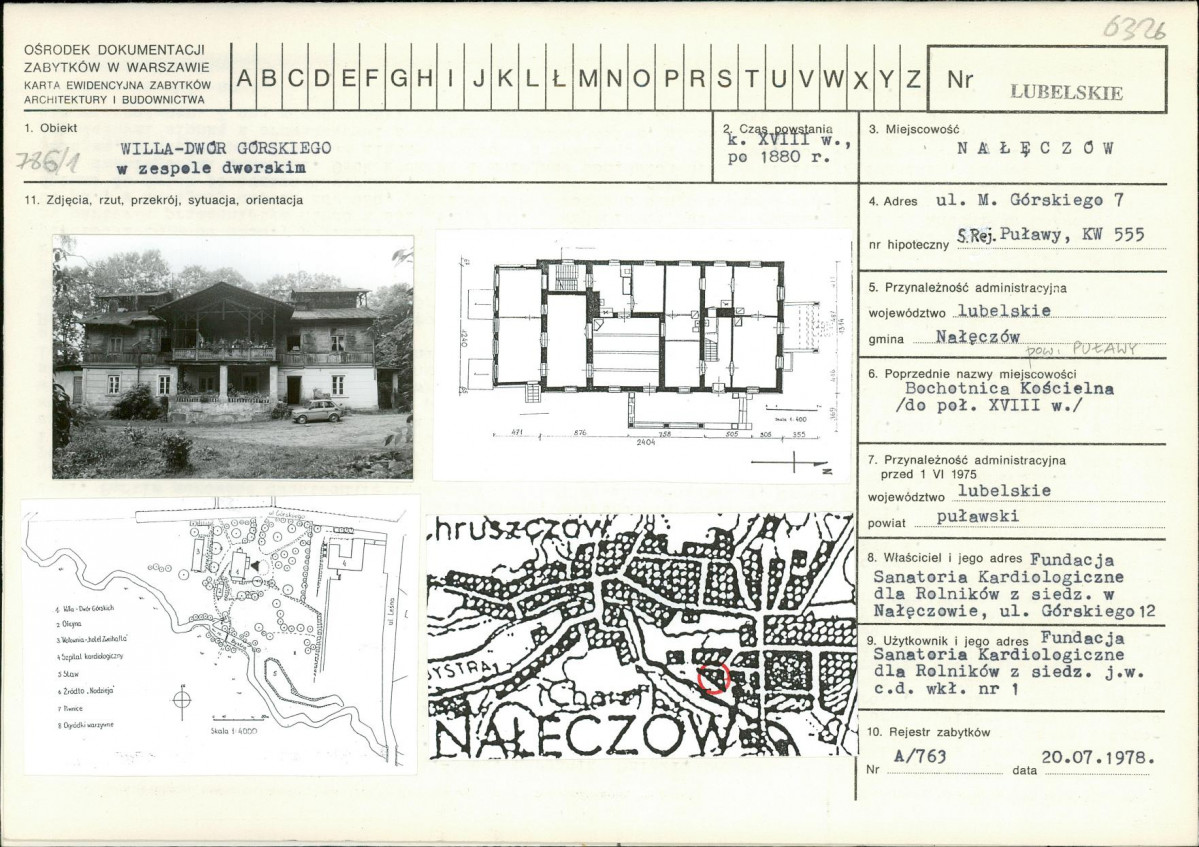 6326
OŚRODEK DOKUMENTACJI
ZABYTKÓW W WARSZAWIE
KARTA EWIDENCYJNA ZABYTKÓW
ARCHITEKTURY I BUDOWNICTWA
A B C D E F G H I J K L Ł M N O P R S T U V W X Y Z
Nr
LUBELSKIE
1. Obiekt
786/1
WILLA-DWÓR GÓRSKIEGO
w zespole dworskim
2. Czas powstania
k. XVIII w.,
po 1880 r.
3. Miejscowość
NAŁĘCZÓW
11. Zdjęcia, rzut, przekrój, sytuacja, orientacja
4. Adres ul. M. Górskiego 7
nr hipoteczny S.Rej. Puławy, KW 555
5. Przynależność administracyjna
województwo lubelskie
gmina Nałęczów
pow. PUŁAWY
6. Poprzednie nazwy miejscowości
Bochotnica Kościelna
/do poł. XVIII w./
7. Przynależność administracyjna
przed 1 VI 1975
województwo lubelskie
powiat puławski
8. Właściciel i jego adres Fundacja
Sanatoria Kardiologiczne
dla Rolników z siedz. w
Nałęczowie, ul. Górskiego 12
9. Użytkownik i jego adres Fundacja
Sanatoria Kardiologiczne
dla Rolników z siedz. j.w.
c.d. wkł. nr 1
10. Rejestr zabytków
Nr A/763 data 20.07.1978.
1240
1514
416
471 876 758 505 305 355
2404
Skala 1:400
N
ul Górskiego
ul Leśna
1 Willa - Dwór Górskich
2 Oficyna
4 Szpital kardiologiczny
5 Staw
6 Źródło "Nadzieja"
7 Piwnice
8 Ogródki warzywne
Skala 1:4000
CHRUSZCZÓW
BYSTRA
NAŁĘCZÓW